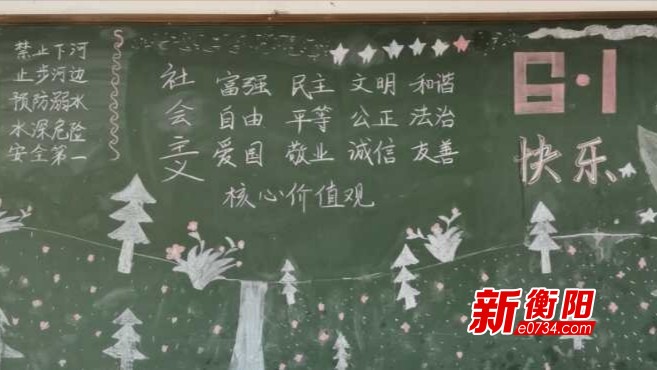 禁止下河
止步河边
预防溺水
水深危险
安全第一
社会主义
富强 民主 文明 和谐
自由 平等 公正 法治
爱国 敬业 诚信 友善
核心价值观
6·1
快乐
新衡阳
e0734.com